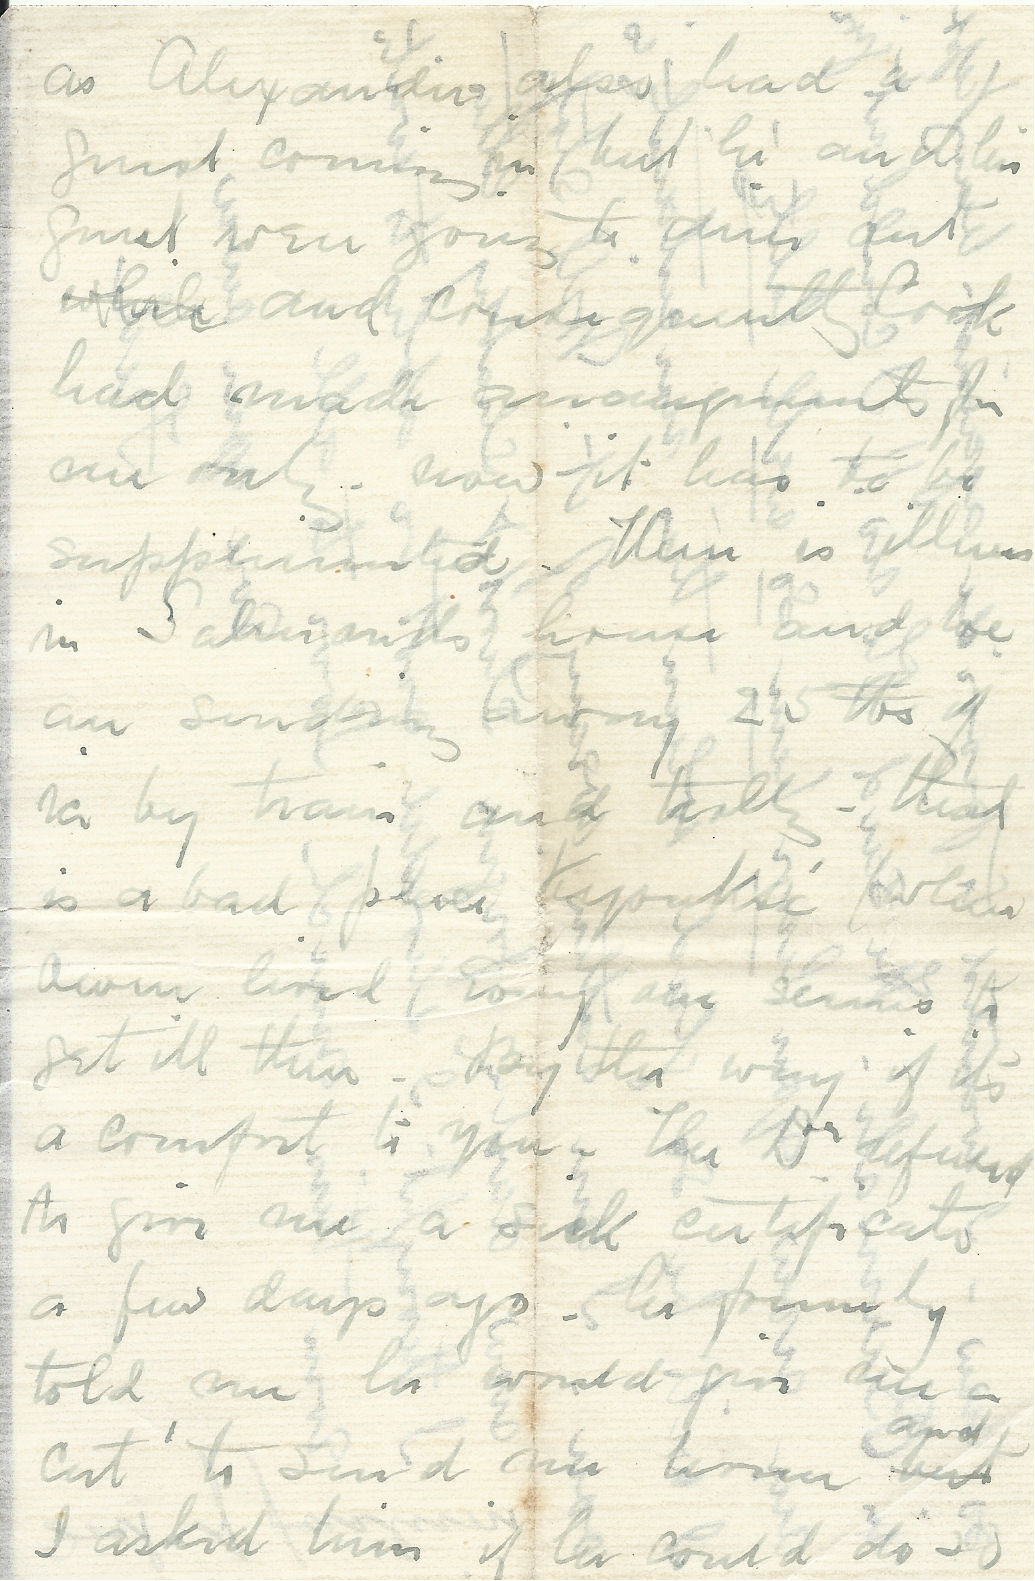 as Alexander also had a
guest coming in but he and his
guest were going to dine out
while and consequently Cook
had made arrangements for
me only - now it has to be
supplemented - There is illness
in Salmond's house and we
are sending away 25 lbs of
ice by train and trolly - that
is a bad place where
Owen lived every one seems to
get ill there - By the way if its
a comfort to you - The Dr refused
to give me a sick certificate
a few days ago - he formerly
told me he would give me a
cert' to send me home and but
I asked him if he could do so